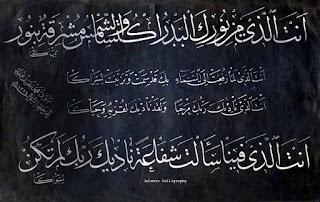 أنت الذي من نورك البدر اكتسى والشمس مشرقة بنور بهاكا
أنت الذي لما رفعت إلى السماء بك قد سمت وتزينت لسراكا
أنت الذي ناداك ربك مرحبا ولقد دعاك لقربه وحباكا
أنت الذي فينا سألت شفاعة ناداك ربك لم تكن لسواكا
Islamic Calligraphy